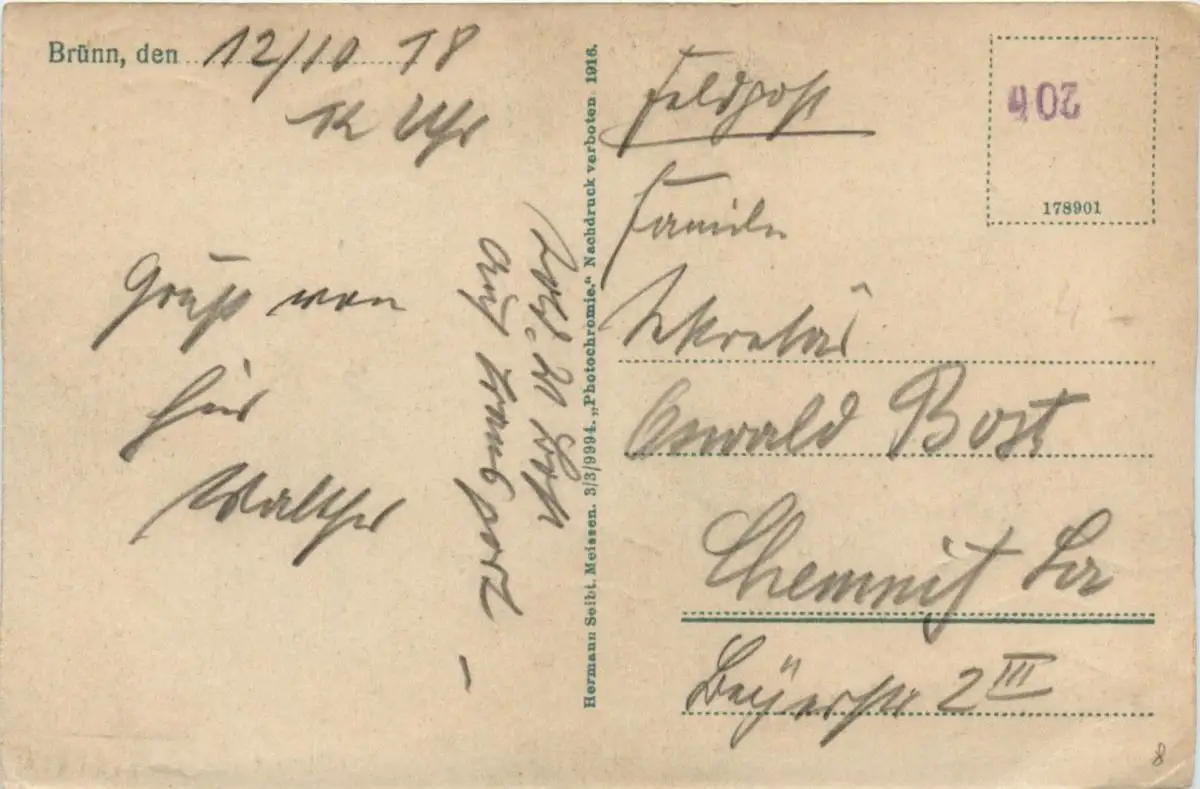 Brünn, den 12/10 18
12 Uhr
Gruß von
hier
Walther
auf Transport
Hermann Seibt. Meissen. 3/3/9994. „Photochromie.“ Nachdruck verboten 1916.
Feldpost
Familie
Sekretär
Oswald Bost
Chemnitz Sa
Beyerstr 2 III
204
178901
8